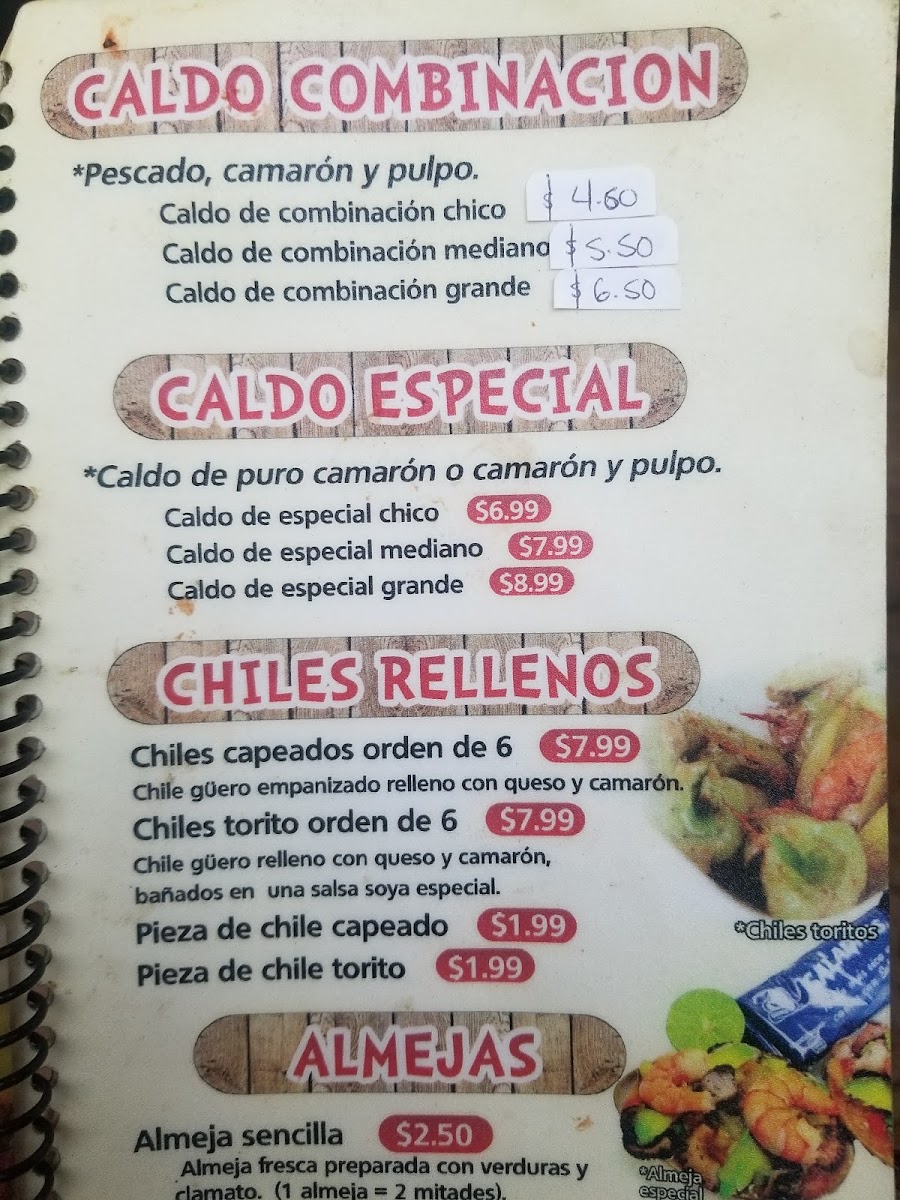 CALDO COMBINACION
*Pescado, camarón y pulpo.
Caldo de combinación chico $ 4.60
Caldo de combinación mediano $5.50
Caldo de combinación grande $6.50
CALDO ESPECIAL
*Caldo de puro camarón o camarón y pulpo.
Caldo de especial chico $6.99
Caldo de especial mediano $7.99
Caldo de especial grande $8.99
CHILES RELLENOS
Chiles capeados orden de 6 $7.99
Chile güero empanizado relleno con queso y camarón.
Chiles torito orden de 6 $7.99
Chile güero relleno con queso y camarón,
bañados en una salsa soya especial.
Pieza de chile capeado $1.99
Pieza de chile torito $1.99
*Chiles toritos
ALMEJAS
Almeja sencilla $2.50
Almeja fresca preparada con verduras y
clamato. (1 almeja = 2 mitades).
*Almeja
especial